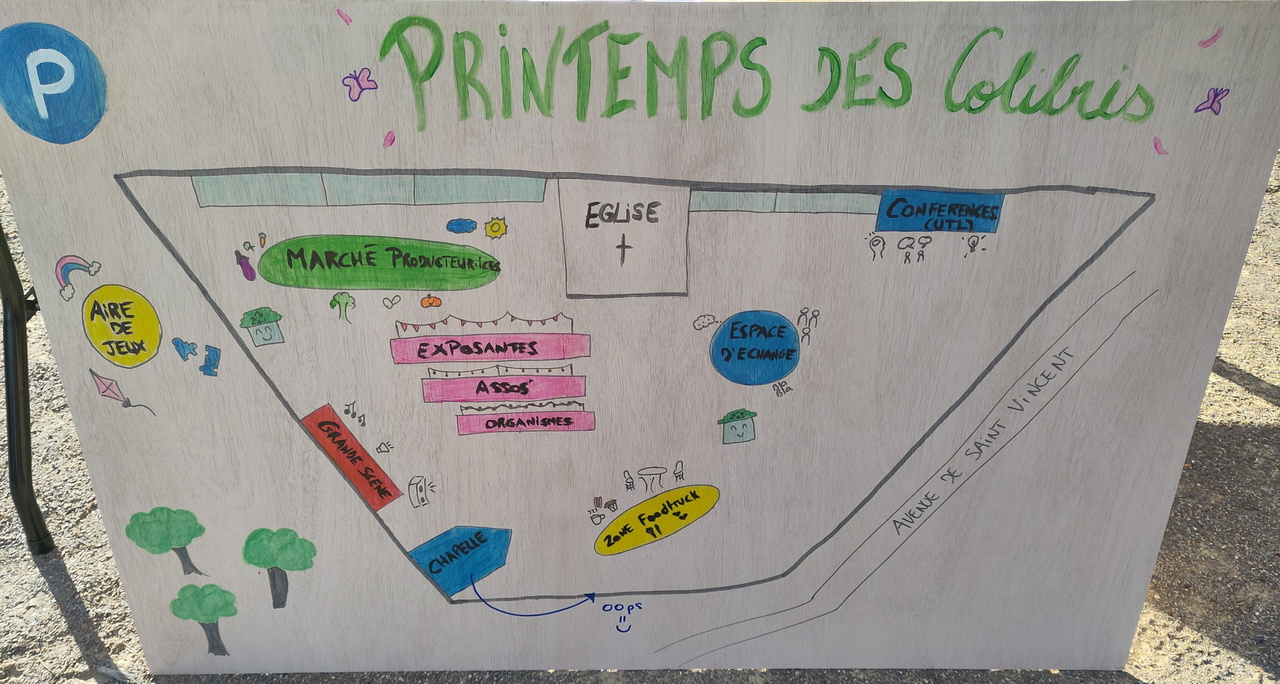 P
PRINTEMPS DES Colibris
EGLISE
CONFERENCES
(UTL)
MARCHÉ PRODUCTEUR·ICES
AIRE
DE
JEUX
EXPOSANTES
ASSOS'
ORGANISMES
ESPACE
D'ECHANGE
Bla
Bla
GRANDE SCÈNE
ZONE Foodtruck
CHAPELLE
OOPS
AVENUE DE SAINT VINCENT